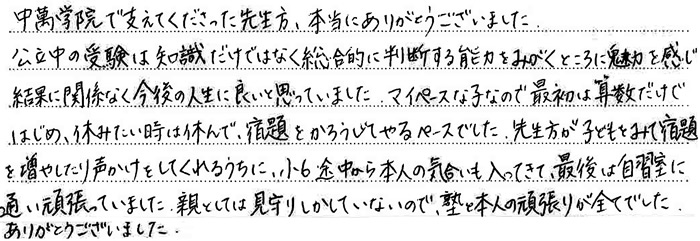 中萬学院で支えてくださった先生方、本当にありがとうございました.
公立中の受験は知識だけではなく総合的に判断する能力をみがくところに魅力を感じ
結果に関係なく今後の人生に良いと思っていました. マイペースな子なので最初は算数だけで
はじめ、休みたい時は休んで、宿題をかろうじてやるペースでした. 先生方が子どもをみて宿題
を増やしたり声かけをしてくれるうちに、小6途中から本人の気合いも入ってきて、最後は自習室に
通い頑張っていました. 親としては見守りしかしていないので、塾と本人の頑張りが全てでした.
ありがとうございました.